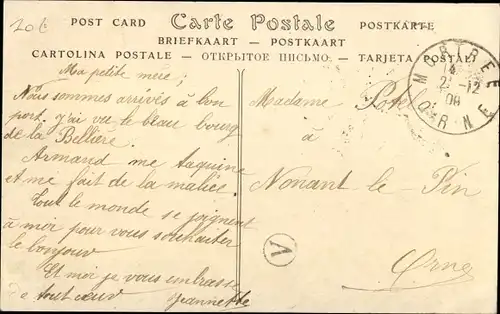 20 €
POST CARD Carte Postale POSTKARTE
BRIEFKAART - POSTKAART
CARTOLINA POSTALE - ОТКРЫТОЕ ПИСЬМО - TARJETA POSTAL
MORTRÉE
14
2-12
09
ORNE
Ma petite mère;
Nous sommes arrivés à bon
port. J'ai vu le beau bourg
de la Bellière.
Armand me taquine
et me fait de la malice.
Tout le monde se joignent
à moi pour vous souhaiter
le bonjour
Et moi je vous embrasse
de tout cœur Jeannette
Madame Potel
à
Nonant-le-Pin
V
Orne